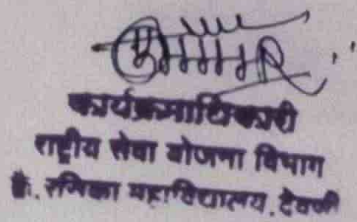 कार्यक्रमाधिकारी
राष्ट्रीय सेवा योजना विभाग
कै. रमिका महाविद्यालय, देवणी